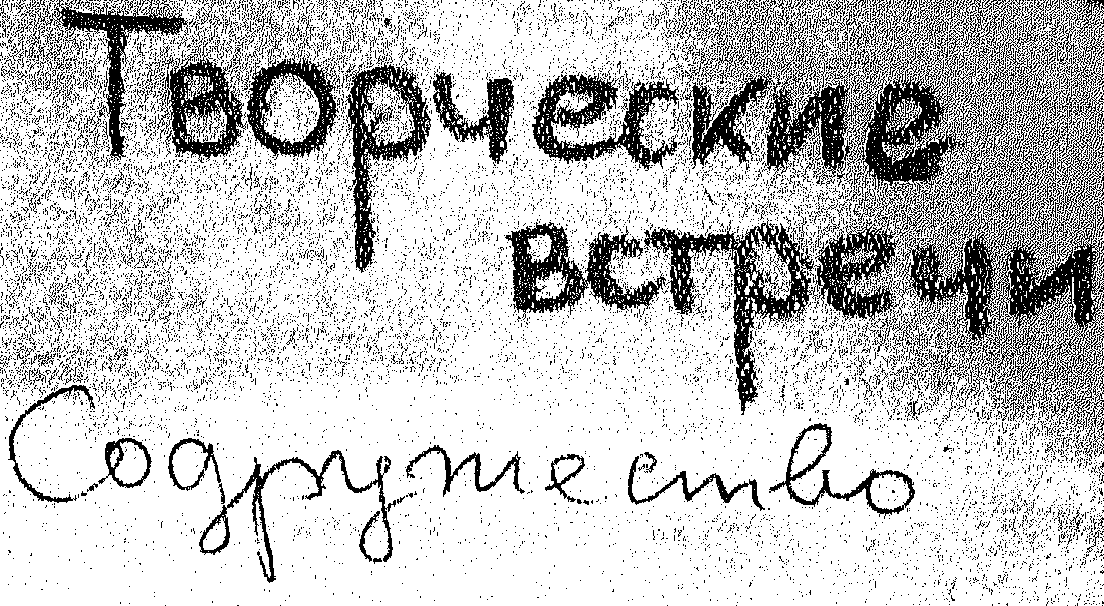 Творческие
встречи
Содружество